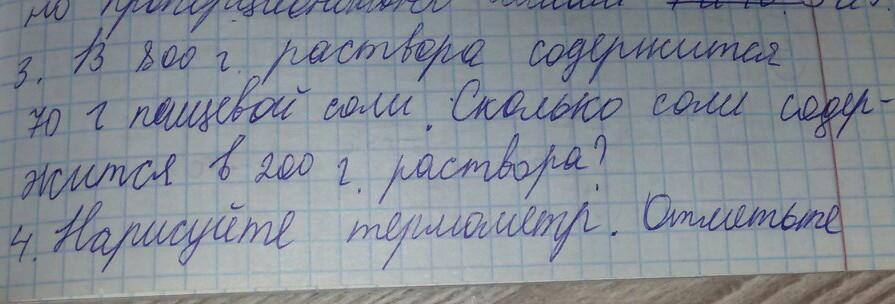 но пропорционально
3. В 800 г. раствора содержится
70 г пищевой соли. Сколько соли содер-
жится в 200 г. раствора?
4. Нарисуйте термометр. Отметьте